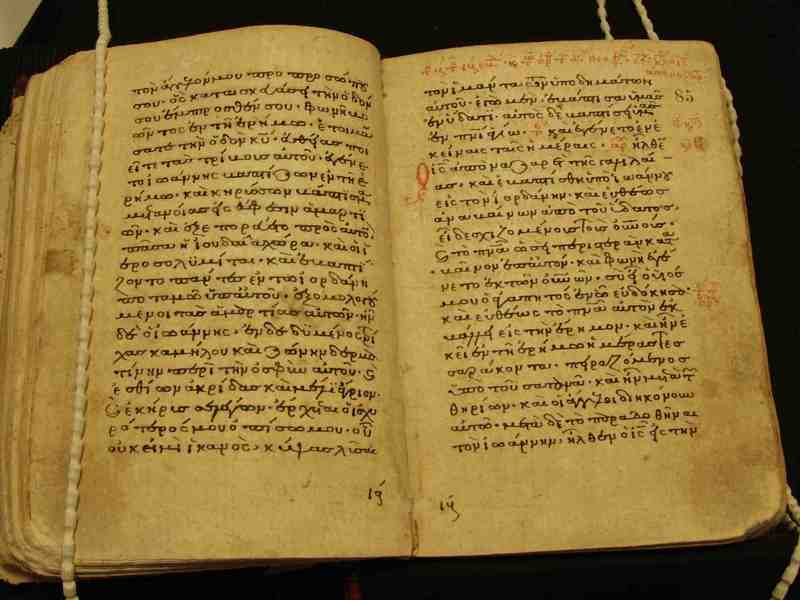 τὸν ἄγγελόν μου πρὸ προσώπου
σου· ὃς κατασκευάσει τὴν ὁδόν
σου ἔμπροσθέν σου· φωνὴ βο
ῶντος ἐν τῇ ἐρήμω· ἑτοιμά
σατε τὴν ὁδὸν κυ· εὐθείας ποι
εῖτε τὰς τρίβους αὐτοῦ· ἐγένε
το ἰωάννης βαπτίζων ἐν τῇ ἐ
ρήμω· καὶ κηρύσσων βάπτισμα
μετανοίας εἰς ἄφεσιν ἁμαρτι
ῶν· καὶ ἐξεπορεύετο πρὸς αὐτὸν
πᾶσα ἡ ἰουδαία χώρα· καὶ οἱ ἱ
εροσολυμίται· καὶ ἐβαπτί
ζοντο πάντες ἐν τῶ ἰορδάνη
ποταμῶ ὑπαυτοῦ· ἐξομολογού
μενοι τὰς ἁμαρτίας αὐτῶν· ἦν
δὲ ὁ ἰωάννης· ἐνδεδυμένος τρί
χας καμήλου καὶ ζώνην δερμα
τίνην περὶ τὴν ὀσφὺν αὐτοῦ· καὶ
ἐσθίων ἀκρίδας καὶ μέλι ἄγριον·
καὶ ἐκήρυσσε λέγων· ἔρχεται ὁ ἰσχυ
ρότερός μου ὀπίσω μου· οὗ
οὐκ εἰμὶ ἱκανὸς κύψας λῦσαι
τὸν ἱμάντα τῶν ὑποδημάτων
αὐτοῦ· ἐγὼ μὲν ἐβάπτισα ὑμᾶς
ἐν ὕδατι· αὐτὸς δὲ βαπτίσει ὑμᾶς
ἐν πνι ἁγίω· καὶ ἐγένετο ἐν ἐ
κείναις ταῖς ἡμέραις· ἦλθεν
ὁ ις ἀπὸ ναζαρετ τῆς γαλιλαί
ας· καὶ ἐβαπτίσθη ὑπὸ ἰωάννου
εἰς τὸν ἰορδάνην· καὶ εὐθέως
ἀναβαίνων ἀπὸ τοῦ ὕδατος·
εἶδε σχιζομένους τοὺς οὐνοὺς·
καὶ τὸ πνα ὡσεὶ περιστερὰν κατα
βαῖνον ἐπαυτόν· καὶ φωνὴ ἐγέ
νετο ἐκ τῶν οὐνῶν· σὺ εἶ ὁ υἱός
μου ὁ ἀγαπητὸς ἐν ᾧ εὐδόκησα·
καὶ εὐθέως τὸ πνα αὐτὸν ἐκ
βάλλει εἰς τὴν ἔρημον· καὶ ἦν ἐ
κεῖ ἐν τῇ ἐρήμω ἡμέρας
σαράκοντα· πειραζόμενος
ὑπὸ τοῦ σατανᾶ· καὶ ἦν μετὰ τῶν
θηρίων· καὶ οἱ ἄγγελοι διηκόνουν
αὐτῶ· μετὰ δὲ τὸ παραδοθῆναι
τὸν ἰωάννην· ἦλθεν ὁ ις εἰς τὴν